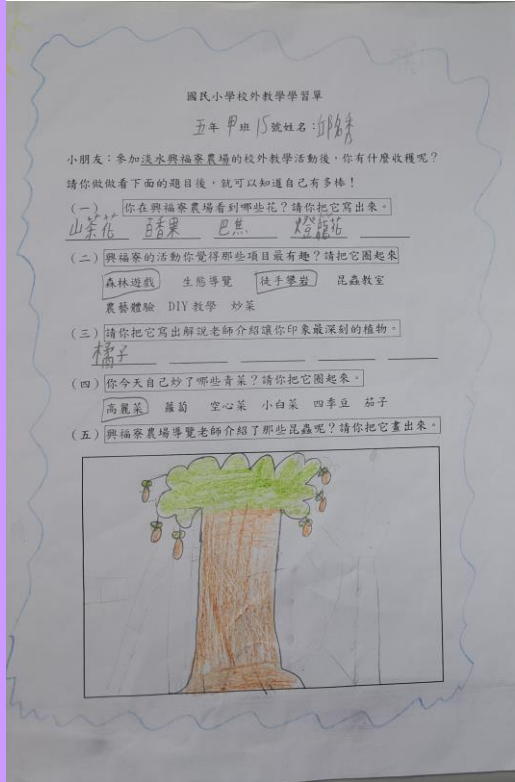 國民小學校外教學學習單
五年 甲班 15號姓名：邱
小朋友：參加淡水興福寮農場的校外教學活動後，你有什麼收穫呢？
請你做做看下面的題目後，就可以知道自己有多棒！
（一）你在興福寮農場看到哪些花？請你把它寫出來。
山茶花 百香果 巴焦 燈籠花
（二）興福寮的活動你覺得那些項目最有趣？請把它圈起來
森林遊戲 生態導覽 徒手攀岩 昆蟲教室
農藝體驗 DIY 教學 炒菜
（三）請你把它寫出解說老師介紹讓你印象最深刻的植物。
橘子
（四）你今天自己炒了哪些青菜？請你把它圈起來。
高麗菜 蘿蔔 空心菜 小白菜 四季豆 茄子
（五）興福寮農場導覽老師介紹了那些昆蟲呢？請你把它畫出來。